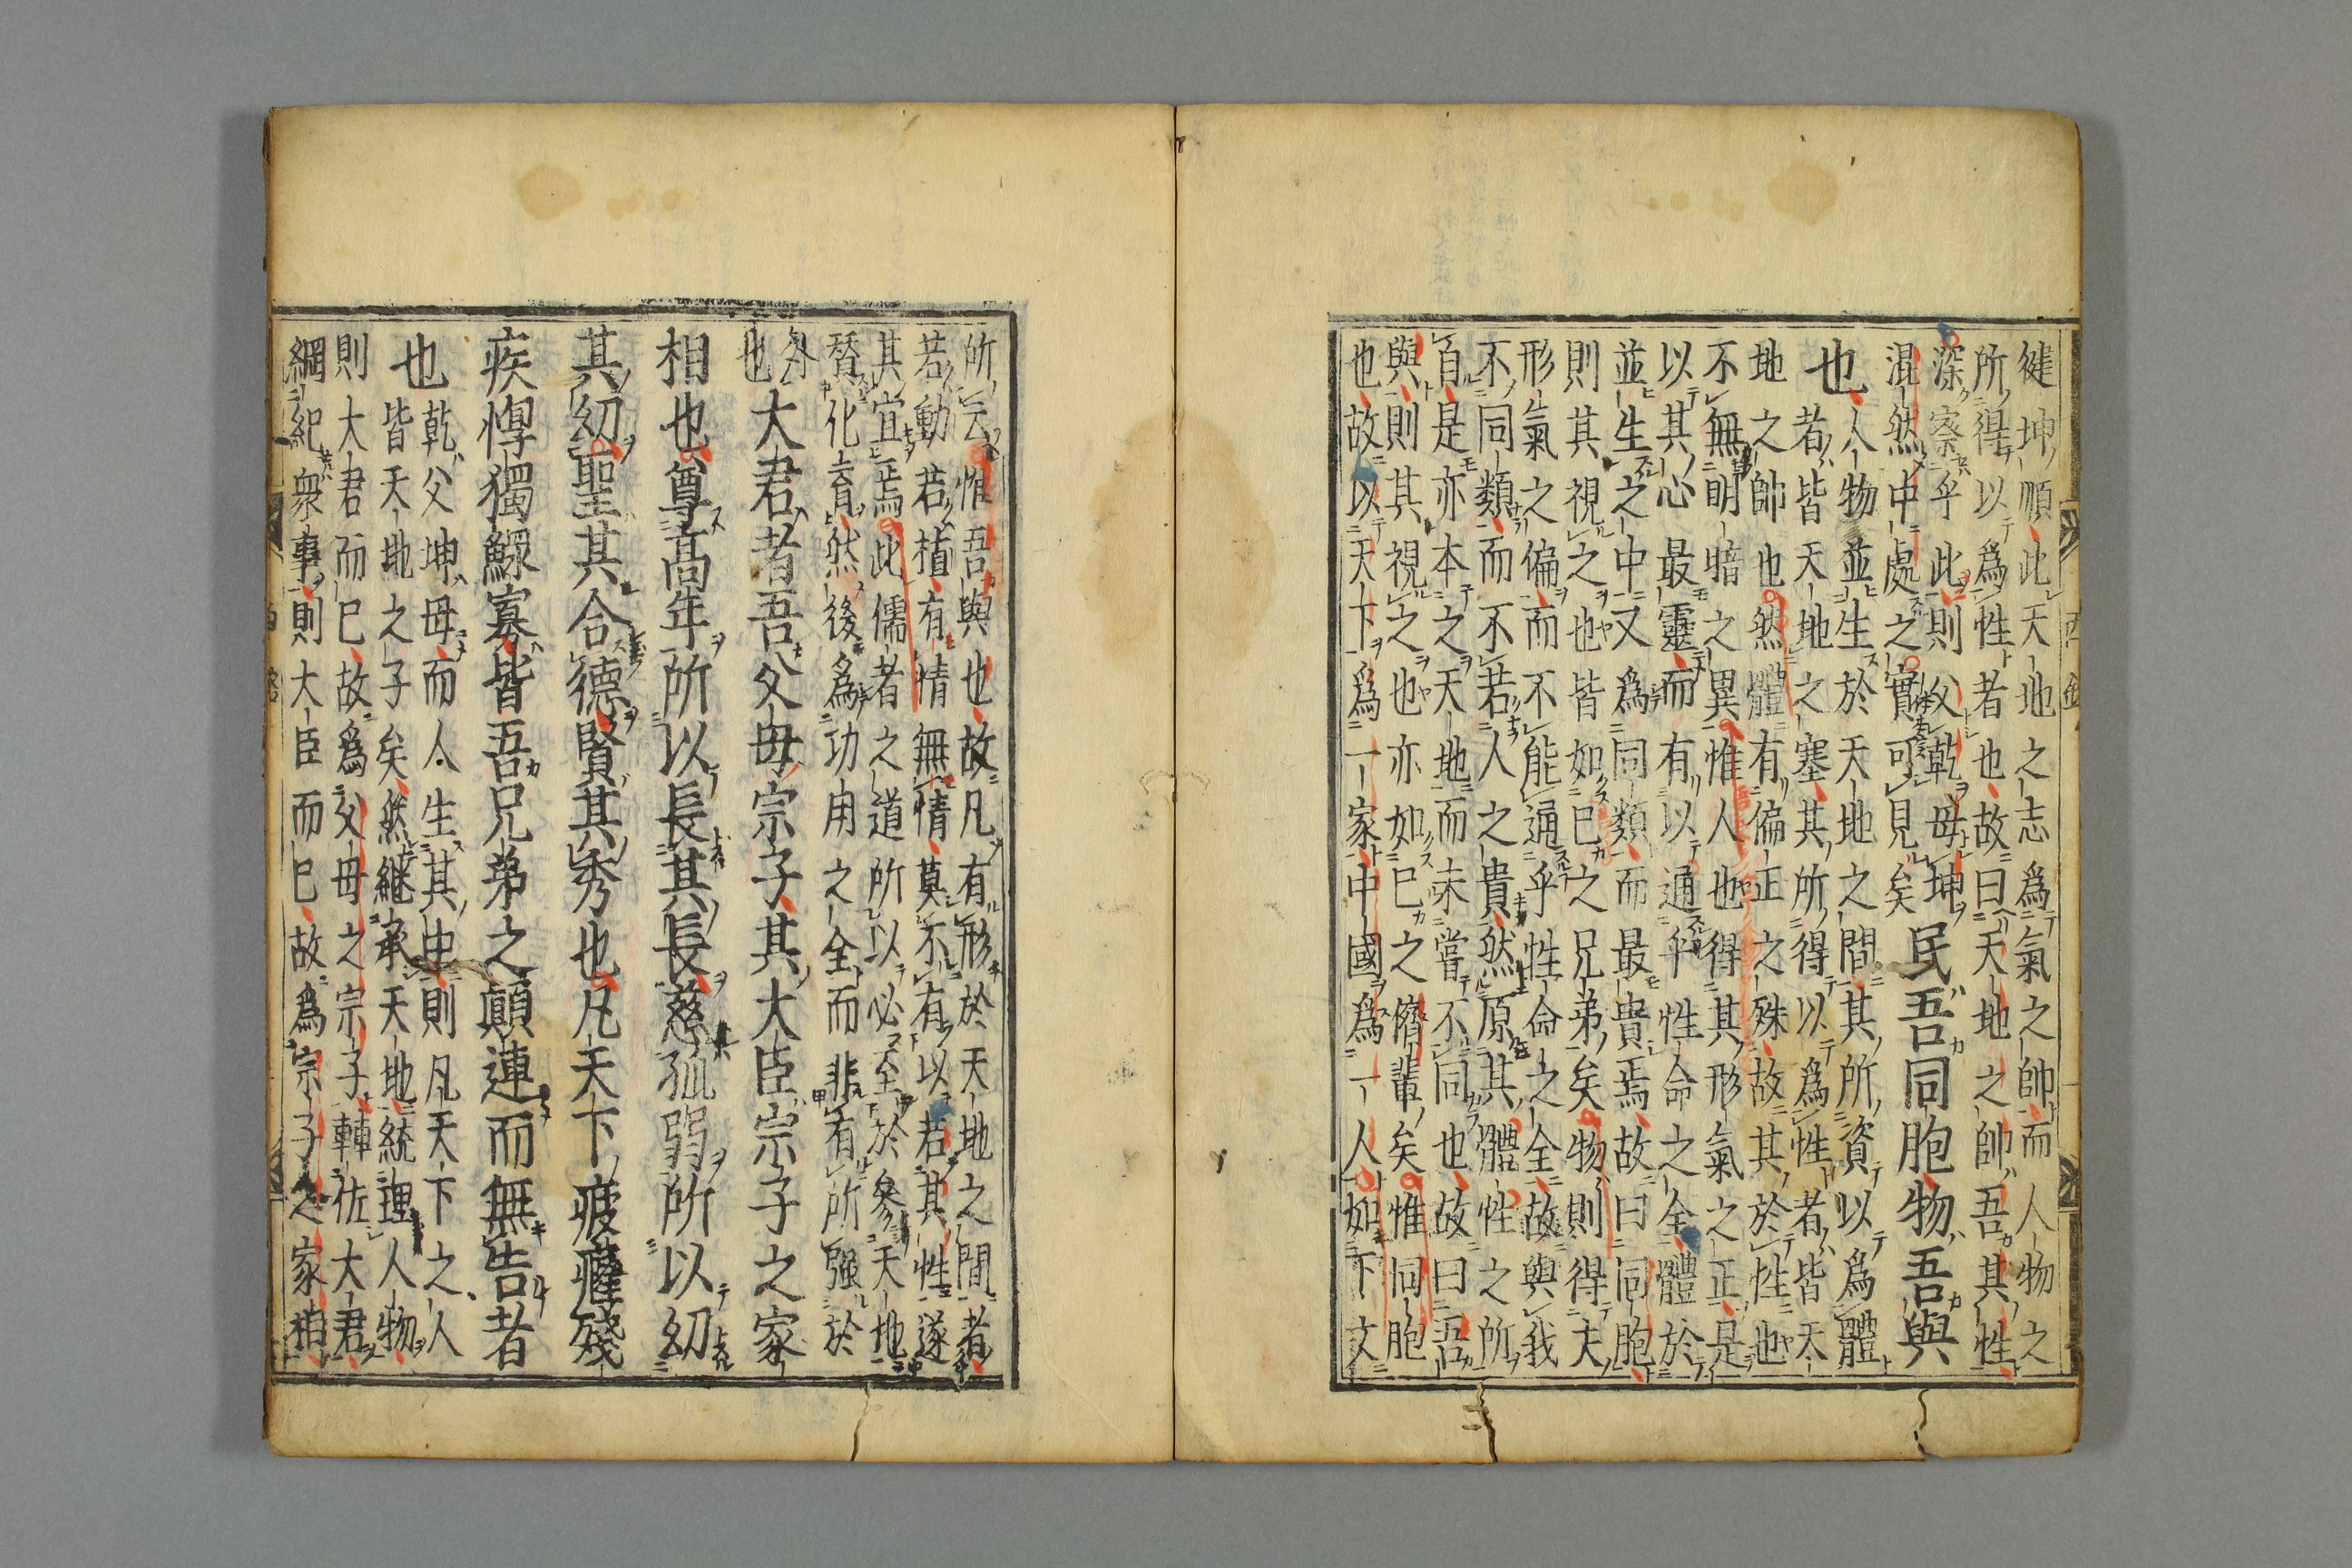 健坤順此天地之志爲氣之帥而人物之
所得以爲性者也故曰天地之帥吾其性
深察乎此則父乾母坤
混然中處之實可見矣
民吾同胞物吾與
也
人物並生於天地之間其所資以爲體
者皆天地之塞其所得以爲性者皆天
地之帥也然體有偏正之殊故其於性也
不無明暗之異惟人也得其形氣之正是
以其心最靈而有以通乎性命之全體於
並生之中又爲同類而最貴焉故曰同胞
則其視之也皆如已之兄弟矣物則得夫
形氣之偏而不能通乎性命之全故與我
不同類而不若人之貴然原其體性之所
自是亦本之天地而未嘗不同也故曰吾
與則其視之也亦如已之儕輩矣惟同胞
也故以天下爲一家中國爲一人如下文
所云惟吾與也故凡有形於天地之間者
若動若植有情無情莫不有以若其性遂
其宜焉此儒者之道所以必至於參天地
賛化育然後爲功用之全而非有所强於
外
也
大君者吾父母宗子其大臣宗子之家
相也尊高年所以長其長慈孤弱所以幼
其幼聖其合德賢其秀也凡天下疲癃殘
疾惸獨鰥寡皆吾兄弟之顚連而無告者
也
乾父坤母而人生其中則凡天下之人
皆天地之子矣然繼承天地統理人物
則大君而已故爲父母之宗子輔佐大君
綱紀衆事則大臣而已故爲宗子之家相